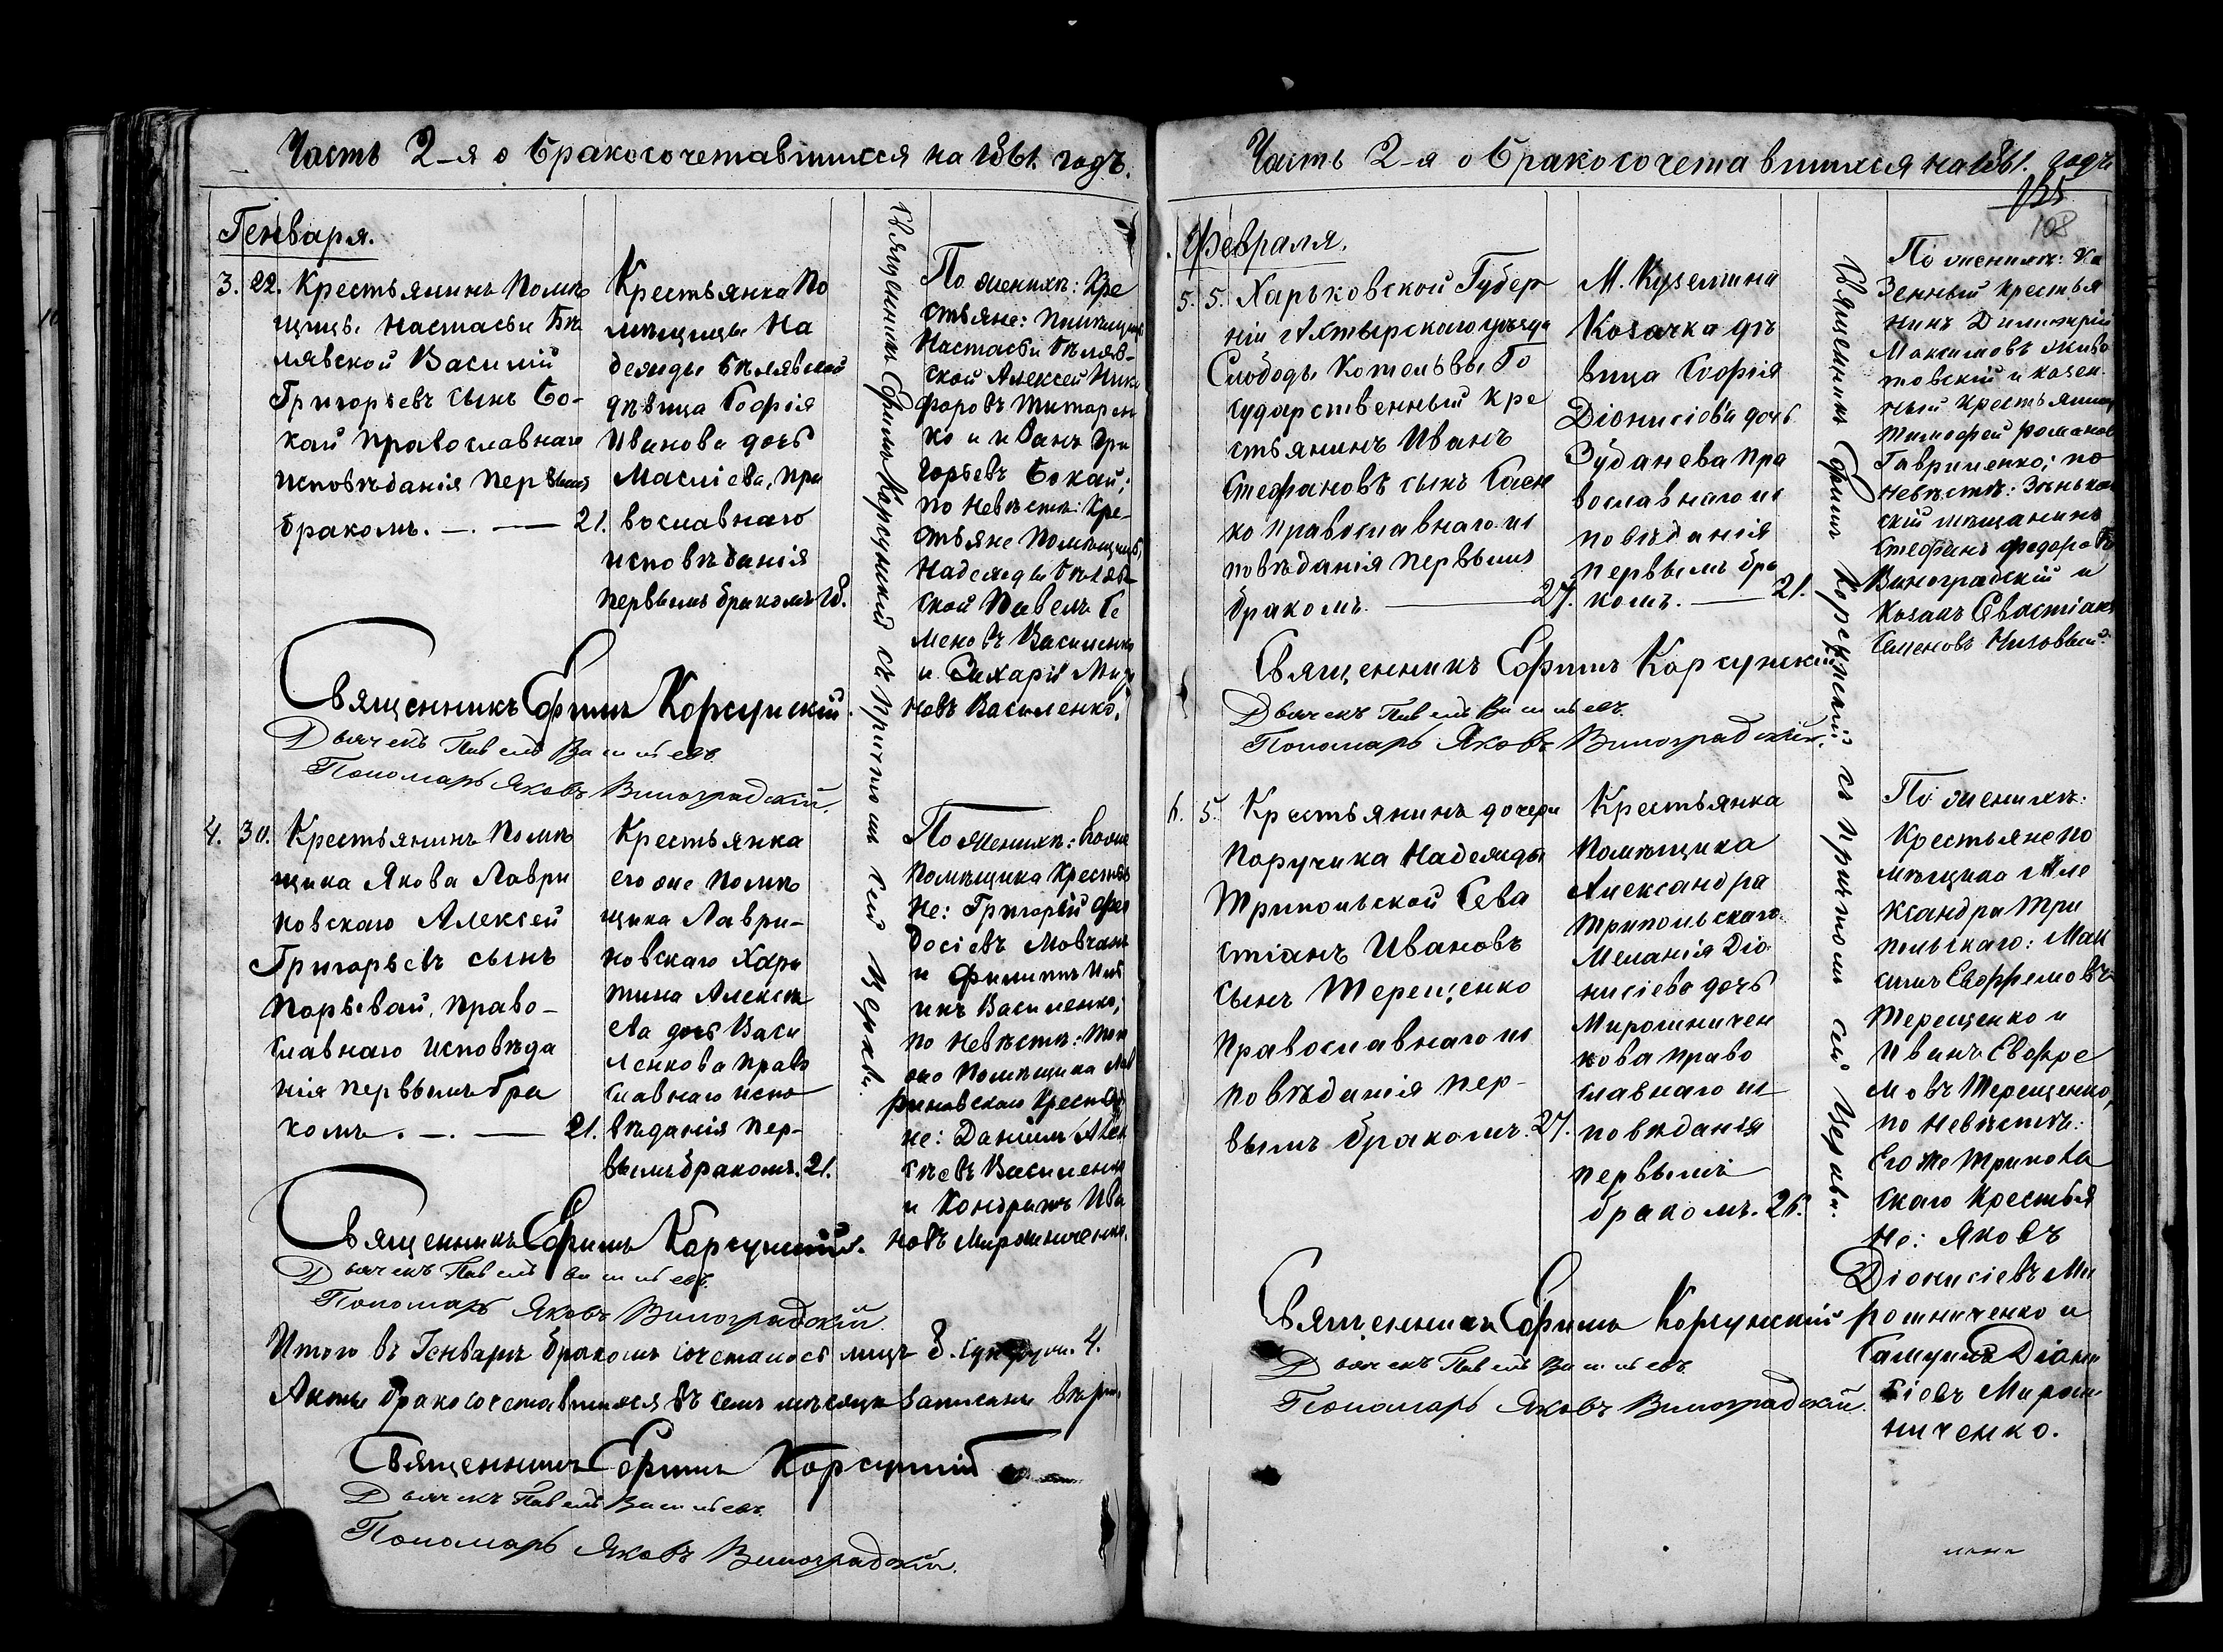 Часть 2-я о бракосочетавшихся на 1861. годъ.
Генваря.
3. 22. Крестьянинъ Помѣ
щицы Настасьи Бѣ
лявской Василій
Григорьевъ сынъ Бо-
кай православнаго
исповѣданія первымъ
бракомъ. — . — 21.
Крестьянка По
мѣщицы На
дежды Бѣлявской
дѣвица Софія
Иванова дочь
Маслiева, пра
вославнаго
исповѣданія
первымъ бракомъ 18.
Священникъ Ефимъ Корсунскій съ причтомъ сей Церкви.
По женихѣ: Кре
стьяне: помѣщицы
Настасьи Бѣляв-
ской Алексей Ники
форовъ Титарен
ко и Иванъ Гри
горьевъ Бокай;
по Невѣстѣ: Кре-
стьяне Помѣщицы
Надежды Бѣляв-
ской Павелъ Се
меновъ Василенко
и Захарій
новъ Василенко.
Священникъ Ефимъ Корсунскій.
Дьячекъ Павелъ Васильевъ.
Пономарь Яковъ Виноградскій.
4. 30. Крестьянинъ Помѣ
щика Якова Лаври
новскаго Алексей
Григорьевъ сынъ
Порывай, право-
славнаго исповѣда
нія первымъ бра
комъ. — . — 21.
Крестьянка
его же помѣ
щика Лаври-
новскаго Хари
тина Алексѣ
ева дочь Васи
ленкова право
славнаго испо
вѣданія пер-
вымъ бракомъ. 21.
По Женихѣ:
Помѣщика Крестья
не: Григорій Фео
досіевъ Мовчанъ
и Филиппъ
Василенко;
по Невѣстѣ: Тог
ожо Помѣщика Лав
риновскаго Крестья
не: Даніилъ Алек
сѣевъ Василенко
и Кондратъ Ива
новъ Мирошниченко.
Священникъ Ефимъ Корсунскій.
Дьячекъ Павелъ Васильевъ.
Пономарь Яковъ Виноградскій.
Итого въ Генварѣ бракомъ сочеталось лицъ 8. 4.
Акты бракосочетавшихся въ семъ мѣсяцѣ записаны вѣрно
Священникъ Ефимъ Корсунскій
Дьячекъ Павелъ Васильевъ.
Пономарь Яковъ Виноградскій.
Часть 2-я о бракосочетавшихся на 1861. годъ
135
108
Февраля.
5. 5. Харьковской Губер
ніи Ахтырскаго уѣзда
Слободы Котельвы Го
сударственный кре
стьянинъ Иванъ
Стефановъ сынъ Гаен
ко православнаго ис
повѣданія первымъ
бракомъ. — 27.
М. Куземина
Козачка дѣ
вица Софія
Діонисіева дочь
Зуданева пра
вославнаго ис
повѣданія
первымъ бра
комъ. — 21.
Священникъ Ефимъ Корсунскій съ причтомъ сей Церкви.
По женихѣ: Ка
зенный крестья
нинъ Димитрій
Максимовъ Живо
товскій и казен
ный Крестьянинъ
Тимофей Романовъ
Гавриленко; по
Невѣстѣ: Зѣньков
скій мѣщанинъ
Стефанъ Федоровъ
Виноградскій и
Козакъ Севастіанъ
Семеновъ Низовый.
Священникъ Ефимъ Корсунскій
Дьячекъ Павелъ Васильевъ.
Пономарь Яковъ Виноградскій.
6. 5. Крестьянинъ дочери
Поручика Надежды
Трипольской Сева
стіанъ Ивановъ
сынъ Терещенко
православнаго ис
повѣданія пер-
вымъ бракомъ. 27.
Крестьянка
Помѣщика
Александра
Трипольскаго
Меланія Діо
нисіева дочь
Мирошничен
кова право
славнаго ис
повѣданія
первымъ
бракомъ. 26.
По женихѣ:
Крестьяне по
мѣщика Але
ксандра Три
польскаго: Мак
симъ Евфремовъ
Терещенко и
Иванъ Евфре
мовъ Терещенко,
по Невѣстѣ:
Его же Триполь
скаго Крестья
не: Яковъ
Діонисіевъ Ми
рошниченко и
Самуилъ Діони
сіевъ Мирош
ниченко.
Священникъ Ефимъ Корсунскій
Дьячекъ Павелъ Васильевъ.
Пономарь Яковъ Виноградскій.